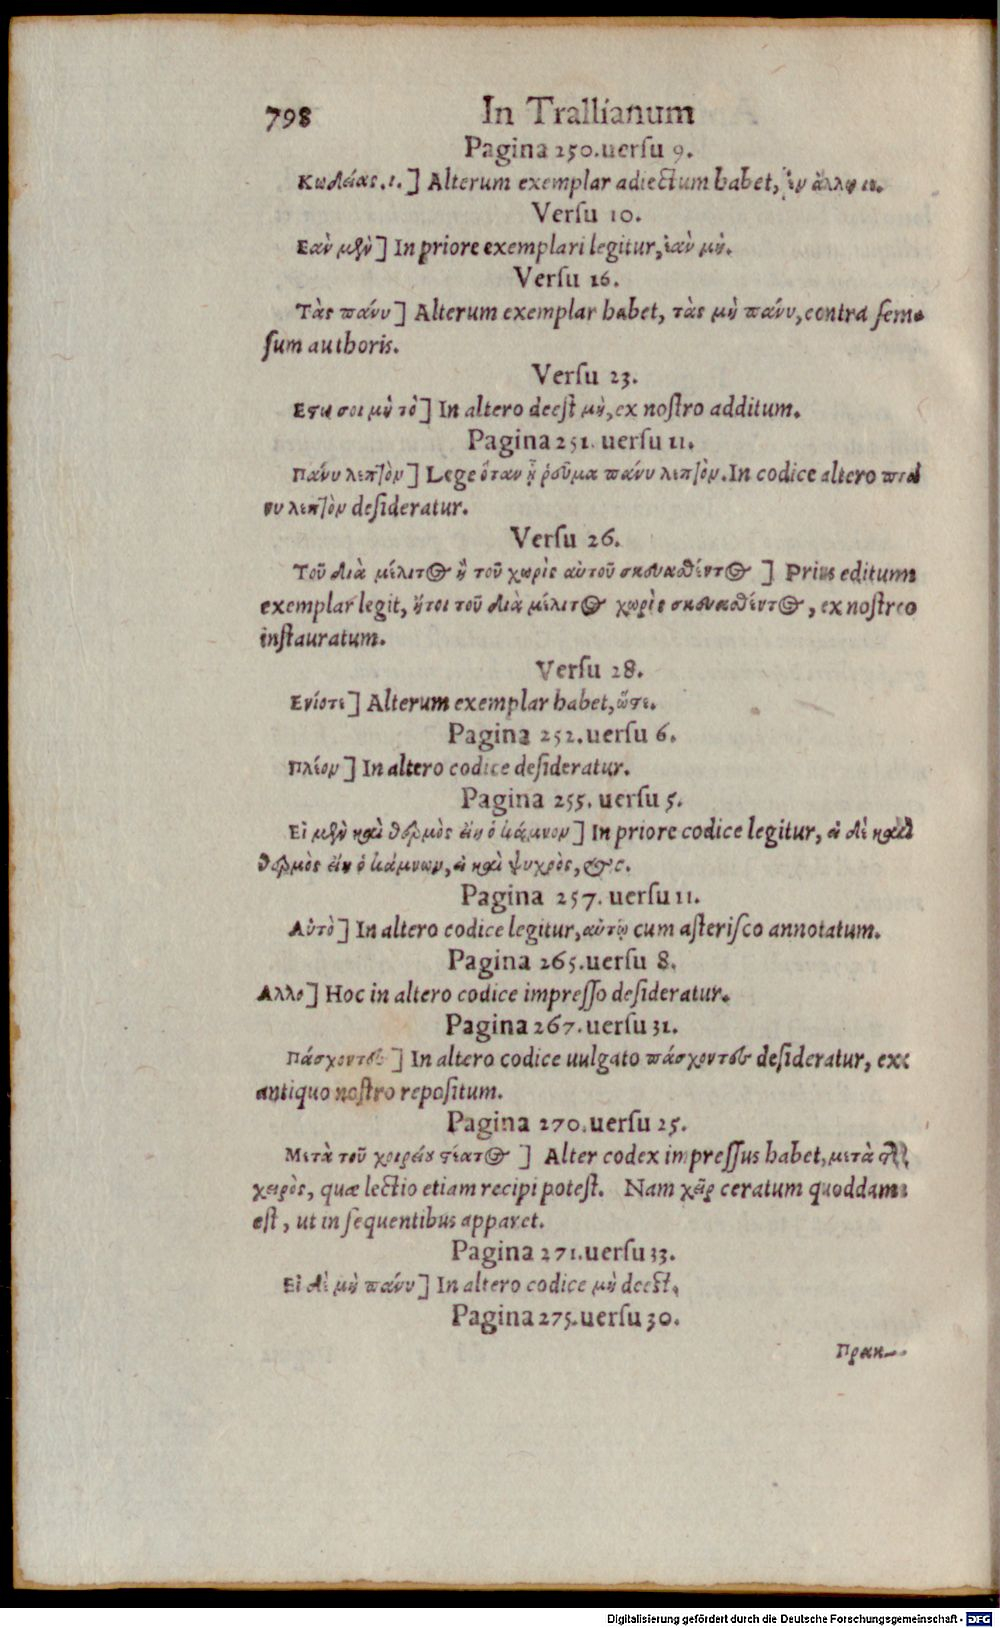 798 In Trallianum
Pagina 250. uersu 9.
Κωδείας. ι. ] Alterum exemplar adiectum habet, ἐν ἄλλῳ ιε.
Versu 10.
Εαν μὲν ] In priore exemplari legitur, ἐὰν μὴ.
Versu 16.
Τὰς πάνυ ] Alterum exemplar habet, τὰς μὴ πάνυ, contra sen-
sum authoris.
Versu 23.
Εστω σοι μὴ τὸ ] In altero deest μὴ, ex nostro additum.
Pagina 251. uersu 11.
Πάνυ λεπτὸν ] Lege ὅταν ᾖ ῥεῦμα πάνυ λεπτὸν. In codice altero πά
νυ λεπτὸν desideratur.
Versu 26.
Τοῦ διὰ μέλιτος ἢ τοῦ χωρὶς αὐτοῦ σκευασθέντος ] Prius editum
exemplar legit, ἤτοι τοῦ διὰ μέλιτος χωρὶς σκευασθέντος, ex nostro
instauratum.
Versu 28.
Ενίοτε ] Alterum exemplar habet, ὥστε.
Pagina 252. uersu 6.
Πλέον ] In altero codice desideratur.
Pagina 255. uersu 5.
Εἰ μὲν καὶ θερμὸς εἴη ὁ κάμνον ] In priore codice legitur, εἰ δὲ καὶ
θερμὸς εἴη ὁ κάμνων, εἰ καὶ ψυχρὸς, &c.
Pagina 257. uersu 11.
Αὐτὸ ] In altero codice legitur, αὐτῷ cum asterisco annotatum.
Pagina 265. uersu 8.
Αλλο ] Hoc in altero codice impresso desideratur.
Pagina 267. uersu 31.
Πάσχοντας ] In altero codice uulgato πάσχοντας desideratur, ex
antiquo nostro repositum.
Pagina 270. uersu 25.
Μετὰ τοῦ χοιρείου στέατος ] Alter codex impressus habet, μετὰ
χειρὸς, quæ lectio etiam recipi potest. Nam χεὶρ ceratum quoddam
est, ut in sequentibus apparet.
Pagina 271. uersu 33.
Εἰ δὲ μὴ πάνυ ] In altero codice μὴ deest.
Pagina 275. uersu 30.
Πρακ-
Digitalisierung gefördert durch die Deutsche Forschungsgemeinschaft - DFG